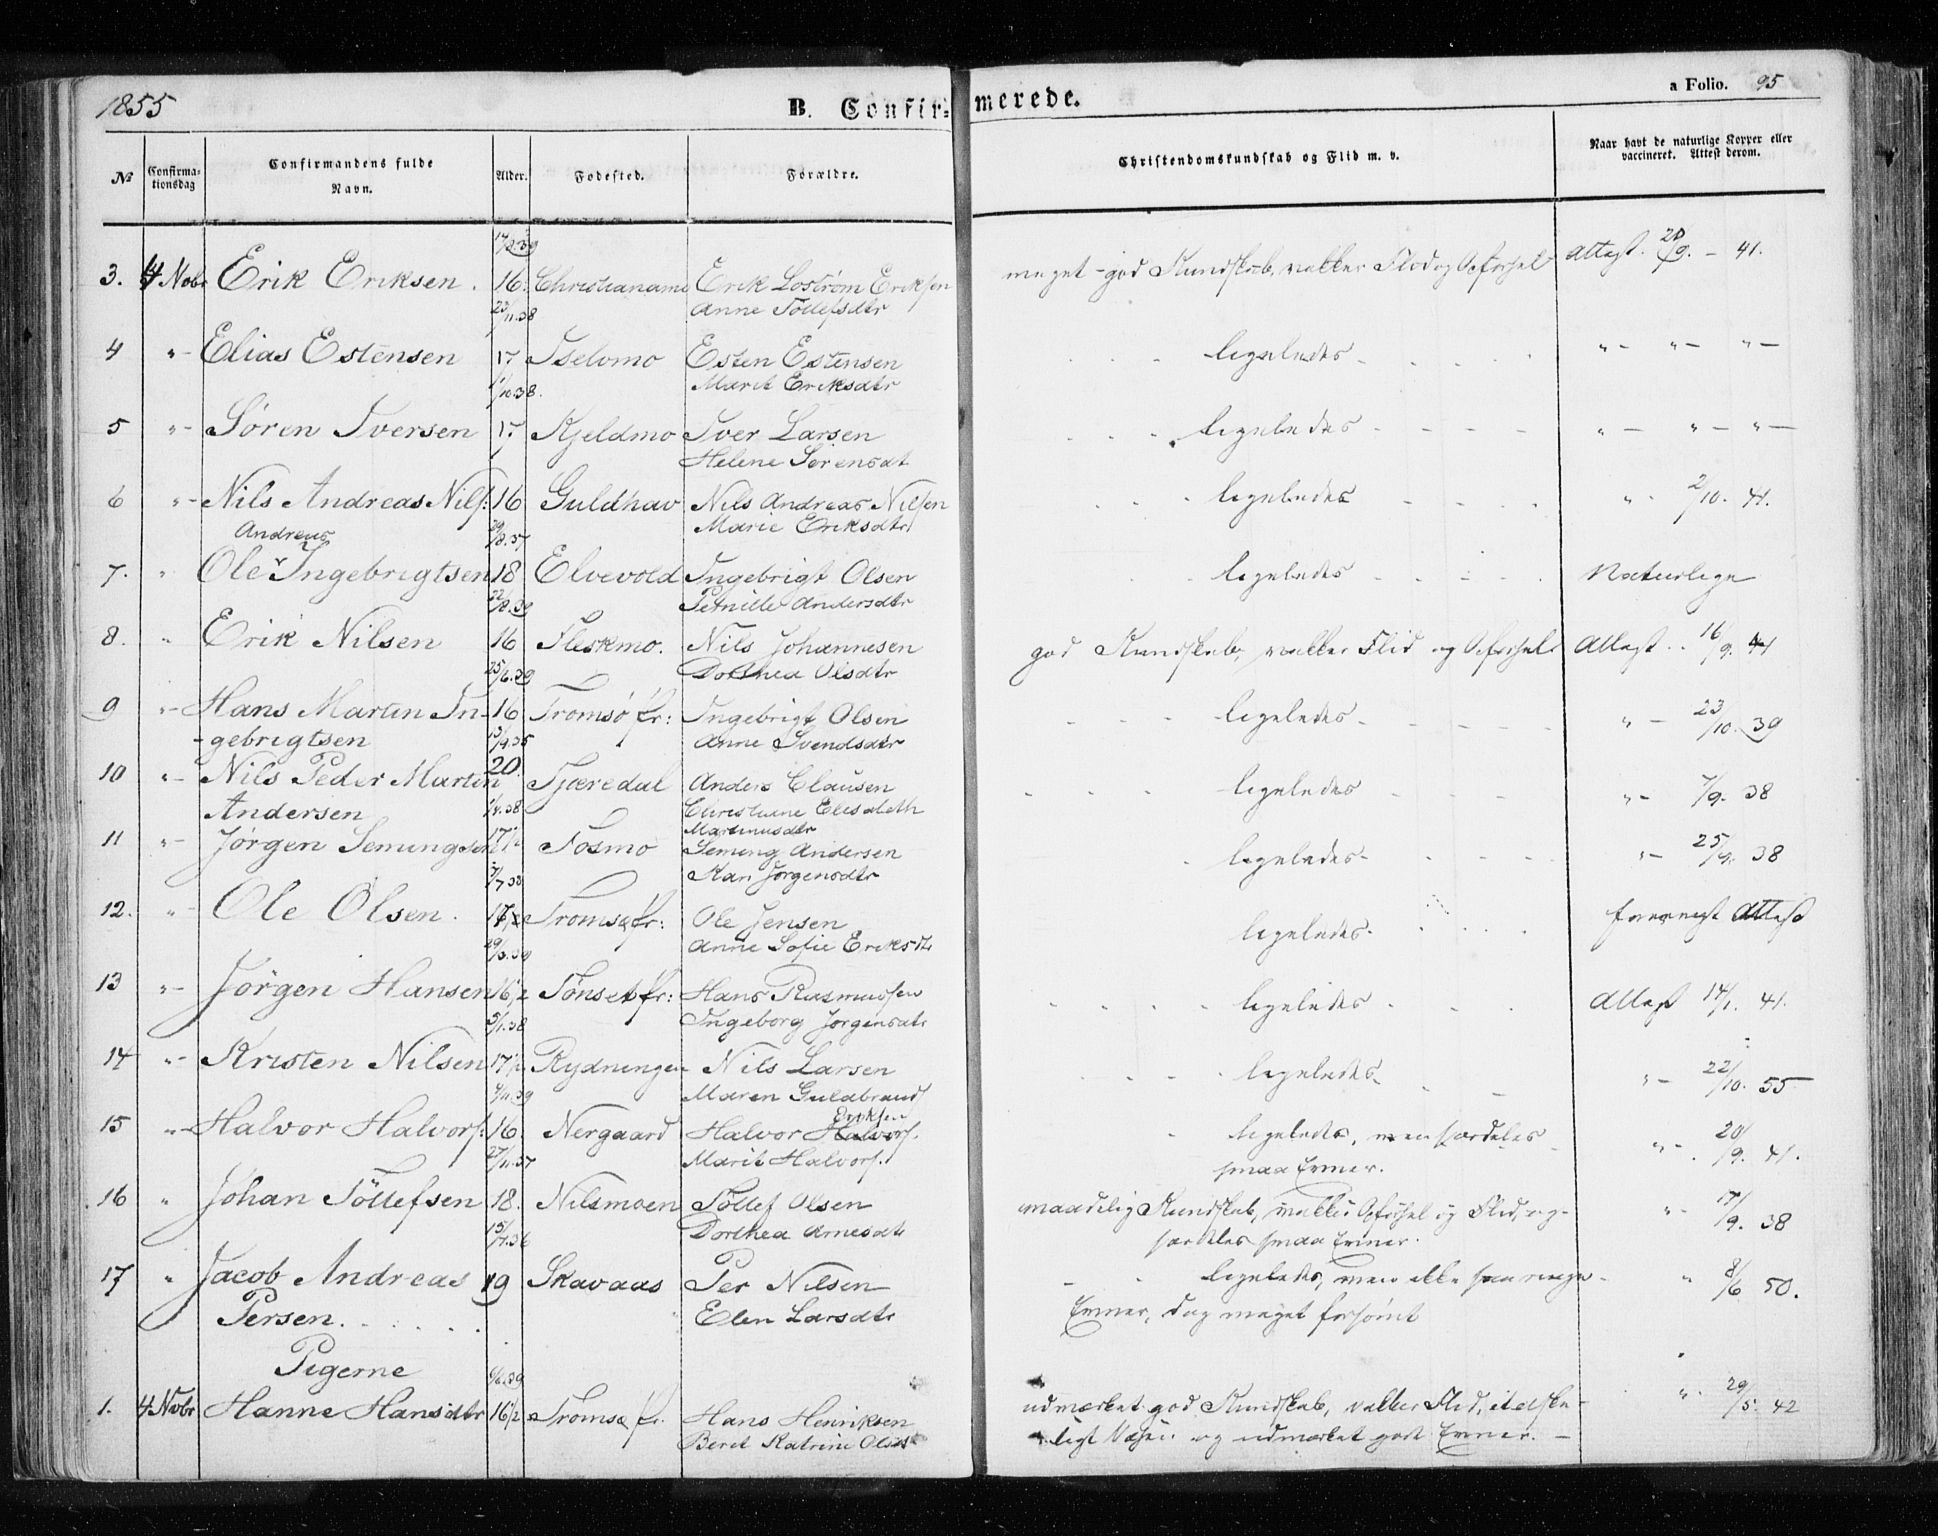 1855 B. Confirmerede. a Folio. 95
No Confirmationsdag Confirmandens fulde Navn. Alder. Fødested. Forældre. Christendomskundskab og Flid m. v. Naar havt de naturlige Kopper eller vaccineret. Attest derom.
3. 4 Nobr Erik Eriksen. 16. Christianame Erik Lostrøm Eriksen meget god Kundskab, vakker Flid og Opførsel Attest. 20/9. - 41.
23/11.38 Anne Tollefsdtr
4 "- Elias Estensen 17 Iselomo Esten Estensen ligeledes "- "- "-
1/10.38. Marit Eriksdtr
5 "- Søren Iversen 17 Kjeldmo Iver Larsen ligeledes "- "- "-
Helene Sørensdt
6 "- Nils Andreas Nils: 16 Guldhav Nils Andreas Nilsen ligeledes " - 2/10. 41.
Andreas Marie Eriksdtr
7. " Ole Ingebrigtsen 18 Elvevold Ingebrigt Olsen ligeledes Naturlige
22/8.39 Petnille Andersdtr
8. " Erik Nilsen 16 Fleskmo. Nils Johannesen god Kundskab, vakker Flid og Opførsel Attest.. 16/9. 41
25/6.39 Dorthea Olsdtr
9 "- Hans Martin In- 16 Tromsø fr: Ingebrigt Olsen ligeledes "- 23/10. 39
-gebrigtsen 13/9.35 Anne Svendsdtr
10 "- Nils Peder Martin 20. Tjæredal Anders Clausen ligeledes "- 7/9. 38
Andersen 1/4.38 Christiane Elisabeth
Martinusdtr
11 "- Jørgen Semingsen 17 1/2 Fosmo Seming Andersen ligeledes "- 25/9. 38
Kari Jørgensdtr
12. "- Ole Olsen. Tromsø fr: Ole Jensen ligeledes Attest
Anne Sofie Eriksdtr
13 "- Jørgen Hansen 16 1/2 Tønset fr: Hans Rasmussen ligeledes Attest 14/1. 41.
5/1.38 Ingeborg Jørgensdtr
14 "- Kristen Nilsen 17 1/2 Rydningen Nils Larsen ligeledes "- 22/10. 55
4/11.39 Maren Guldbrands
Eriksen
15 "- Halvor Halvors: 16. Nergaard Halvor Halvors. ligeledes, men særdeles "-. 20/9. 41.
27/11.37 Marit Halvors. smaa Evner.
16 " Johan Töllefsen 18. Nilsmoen Tollef Olsen maadelig Kundskab, vakker Opførsel og Flid, og "- 17/9. 38
15/7.36 Dorthea Arnesdtr særdeles smaa Evner.
17 " Jacob Andreas 19 Skavaas Per Nilsen ligeledes, men ikke saa ringe " 8/6 50.
Persen. Elen Larsdtr Evner, dog meget forsømt
Pigerne 6/6.39
1. 4 Nobr Hanne Hansdtr 16 1/2 Tromsø fr. Hans Henriksen udmærket god Kundskab, vakker Flid, ". 29/5. 42
Berit Katrine Olsdt ligt Væsen og udmærket gode Evner.